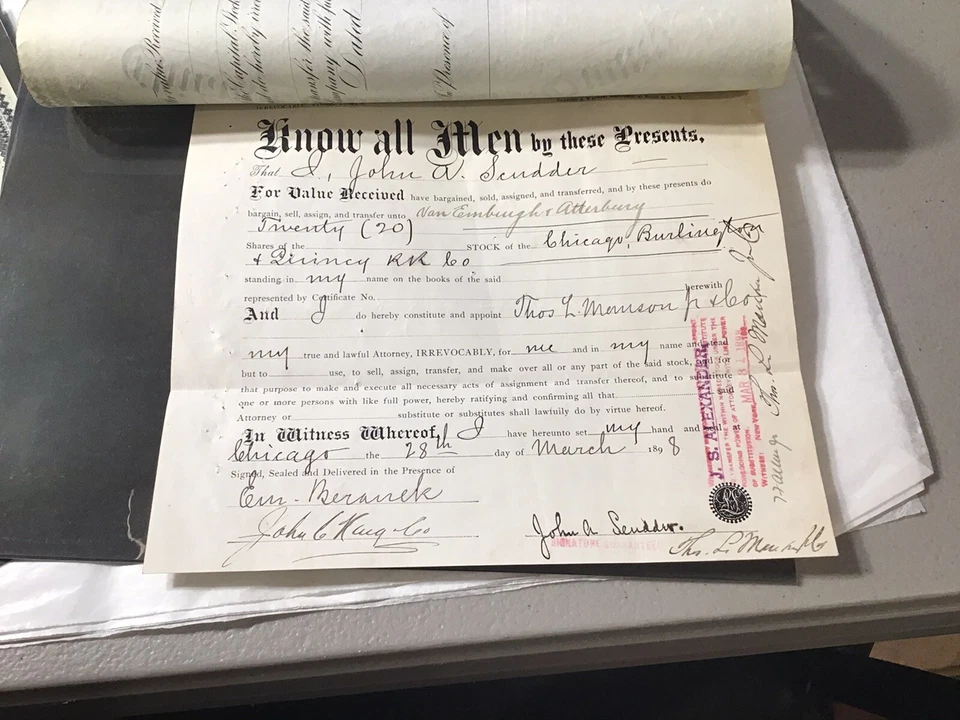 Know all Men by these Presents,
That I, John A. Scudder
For Value Received have bargained, sold, assigned, and transferred, and by these presents do
bargain, sell, assign, and transfer unto Van Emburgh & Atterbury
Twenty (20)
Shares of the STOCK of the Chicago, Burlington
& Quincy RR Co
standing in my name on the books of the said
represented by Certificate No. herewith
And I do hereby constitute and appoint Thos L. Manson Jr & Co
my true and lawful Attorney, IRREVOCABLY, for me and in my name and stead
but to use, to sell, assign, transfer, and make over all or any part of the said stock, and for
that purpose to make and execute all necessary acts of assignment and transfer thereof, and to substitute
one or more persons with like full power, hereby ratifying and confirming all that said
Attorney or substitute or substitutes shall lawfully do by virtue hereof.
In Witness Whereof, I have hereunto set my hand and at
Chicago the 28th day of March 1898
Signed, Sealed and Delivered in the Presence of
Em. Beranek
John A. Scudder.
SIGNATURE GUARANTEED
Ths. L. Manson Jr & Co
J. S. ALEXANDER
OF SUBSTITUTION.
WITNESS: New York,
MAR 31 1898